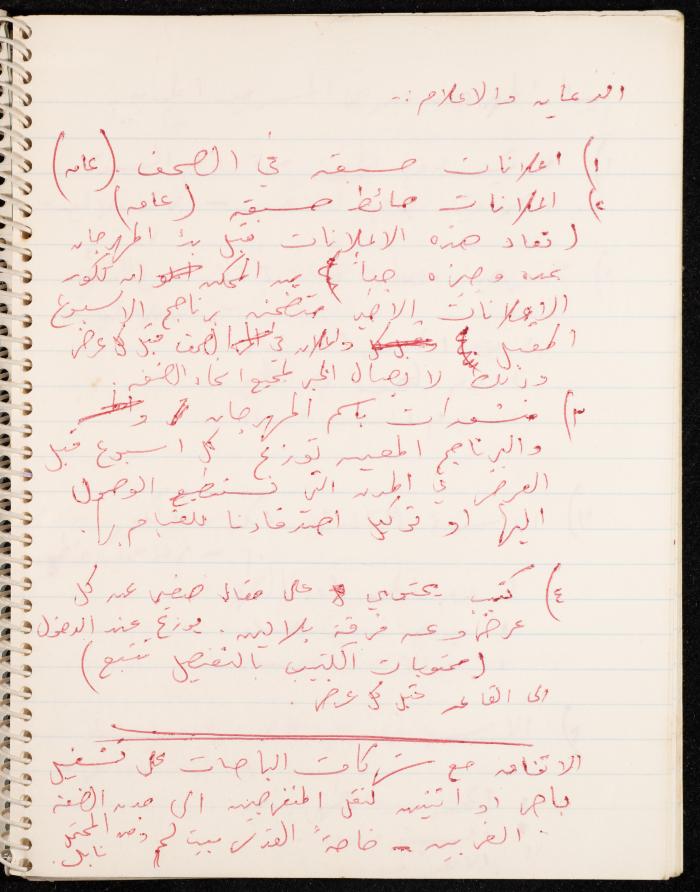 الدعايه والاعلام :-
١) اعلانات مسبقه في الصحف . (عامه)
٢) اعلانات حائط مسبقه (عامه)
( تعاد هذه الاعلانات قبل بدء المهرجان
بمده وجيزه جداً ) من الممكن ان تكون
الاعلانات الاخيره متضمنه برنامج الاسبوع
المقبل واعلان في الصحف قبل كل عرض
وذلك لايصال الخبر لجميع انحاء الضفه .
٣) منشورات باسم المهرجان
والبرنامج المعين توزع كل اسبوع قبل
العرض في المدن التي نستطيع الوصول
اليها او توكيل اصدقاءنا للقيام بها .
٤) كتيب يحتوي على مقال صغير عن كل
عرض وعن فرقة بلالين . يوزع عند الدخول
(محتويات الكتيب بالتفصيل تتبع)
الى القاعه قبل كل عرض .
الاتفاق مع شركات الباصات على تشغيل
باص او اثنين لنقل المتفرجين الى مدن الضفة
الغربيه - خاصةً القدس بيت لحم ومن المحتمل
نابلس .